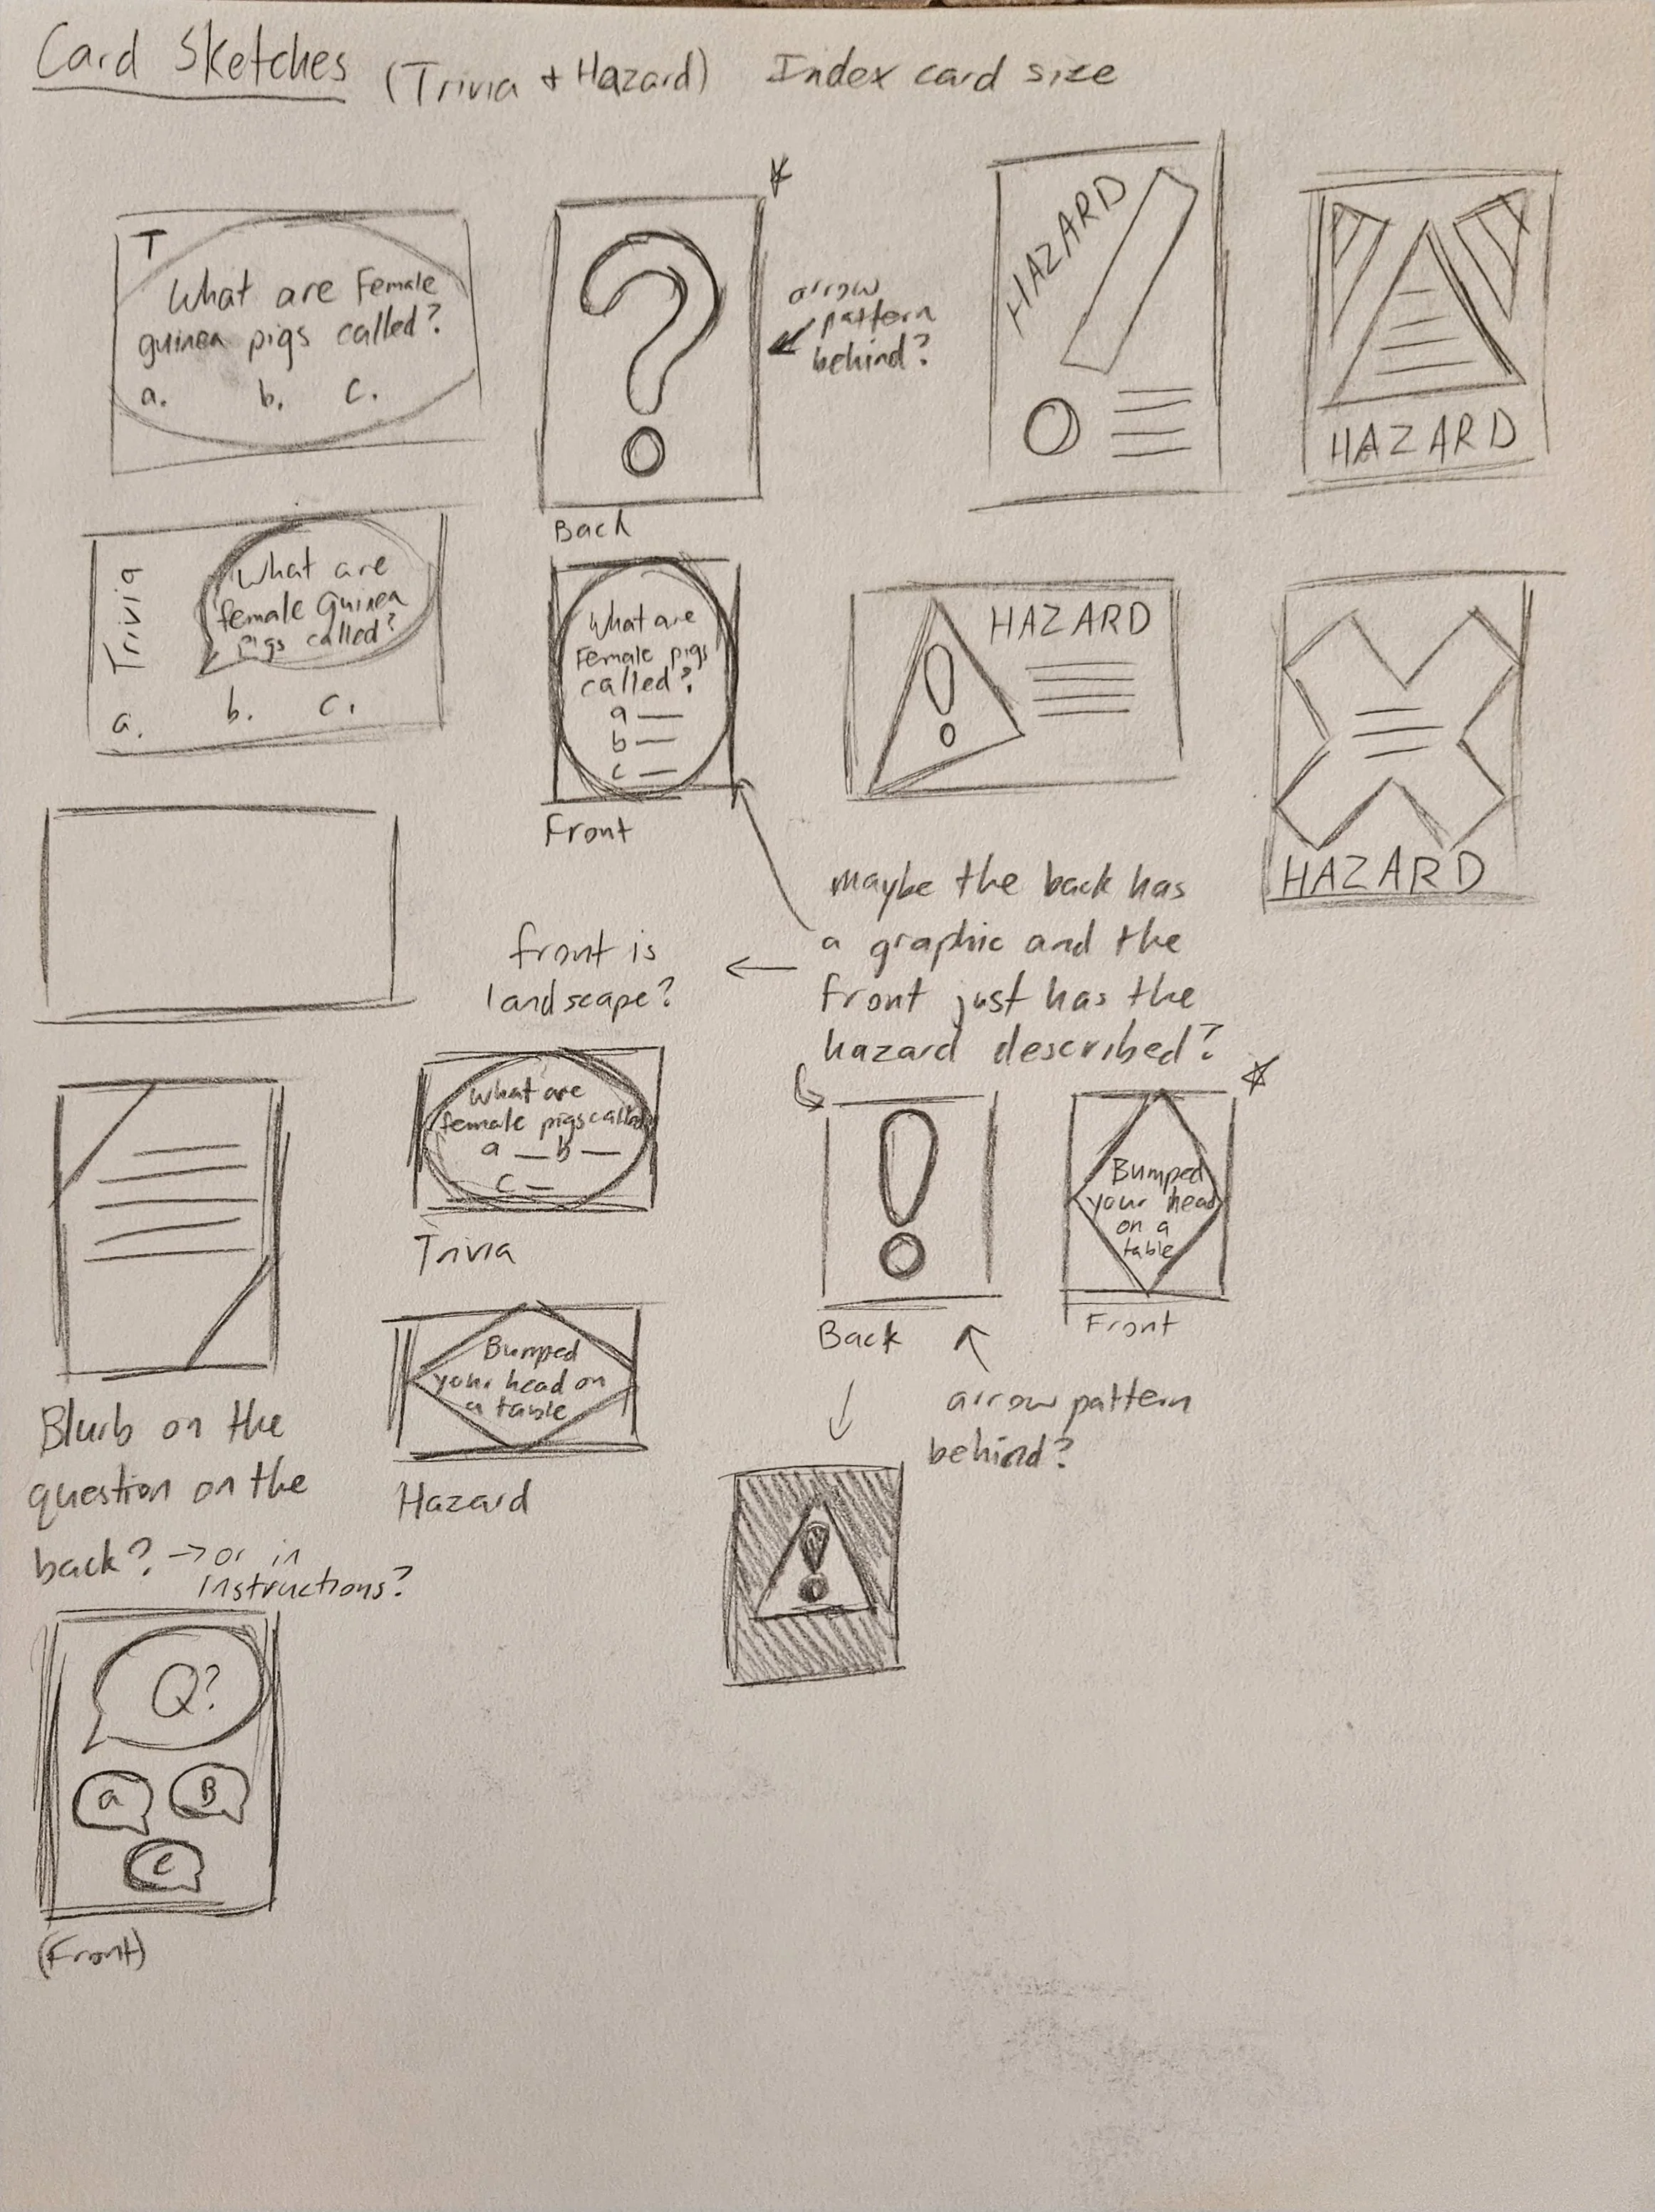 Card Sketches (Trivia + Hazard) Index card size
T
What are Female
guinea pigs called?
a. b. c.
?
Back
arrow
pattern
behind?
HAZARD
HAZARD
Trivia
What are
female Guinea
pigs called?
a. b. c.
What are
Female pigs
called?
a
b
c
Front
!
HAZARD
HAZARD
maybe the back has
a graphic and the
front just has the
hazard described?
front is
landscape?
Blurb on the
question on the
back? → or in
instructions?
What are
female pigs called
a b
c
Trivia
Bumped
your head on
a table
Hazard
!
Back
Bumped
your head
on a
table
Front
arrow pattern
behind?
!
Q?
a B
C
(Front)